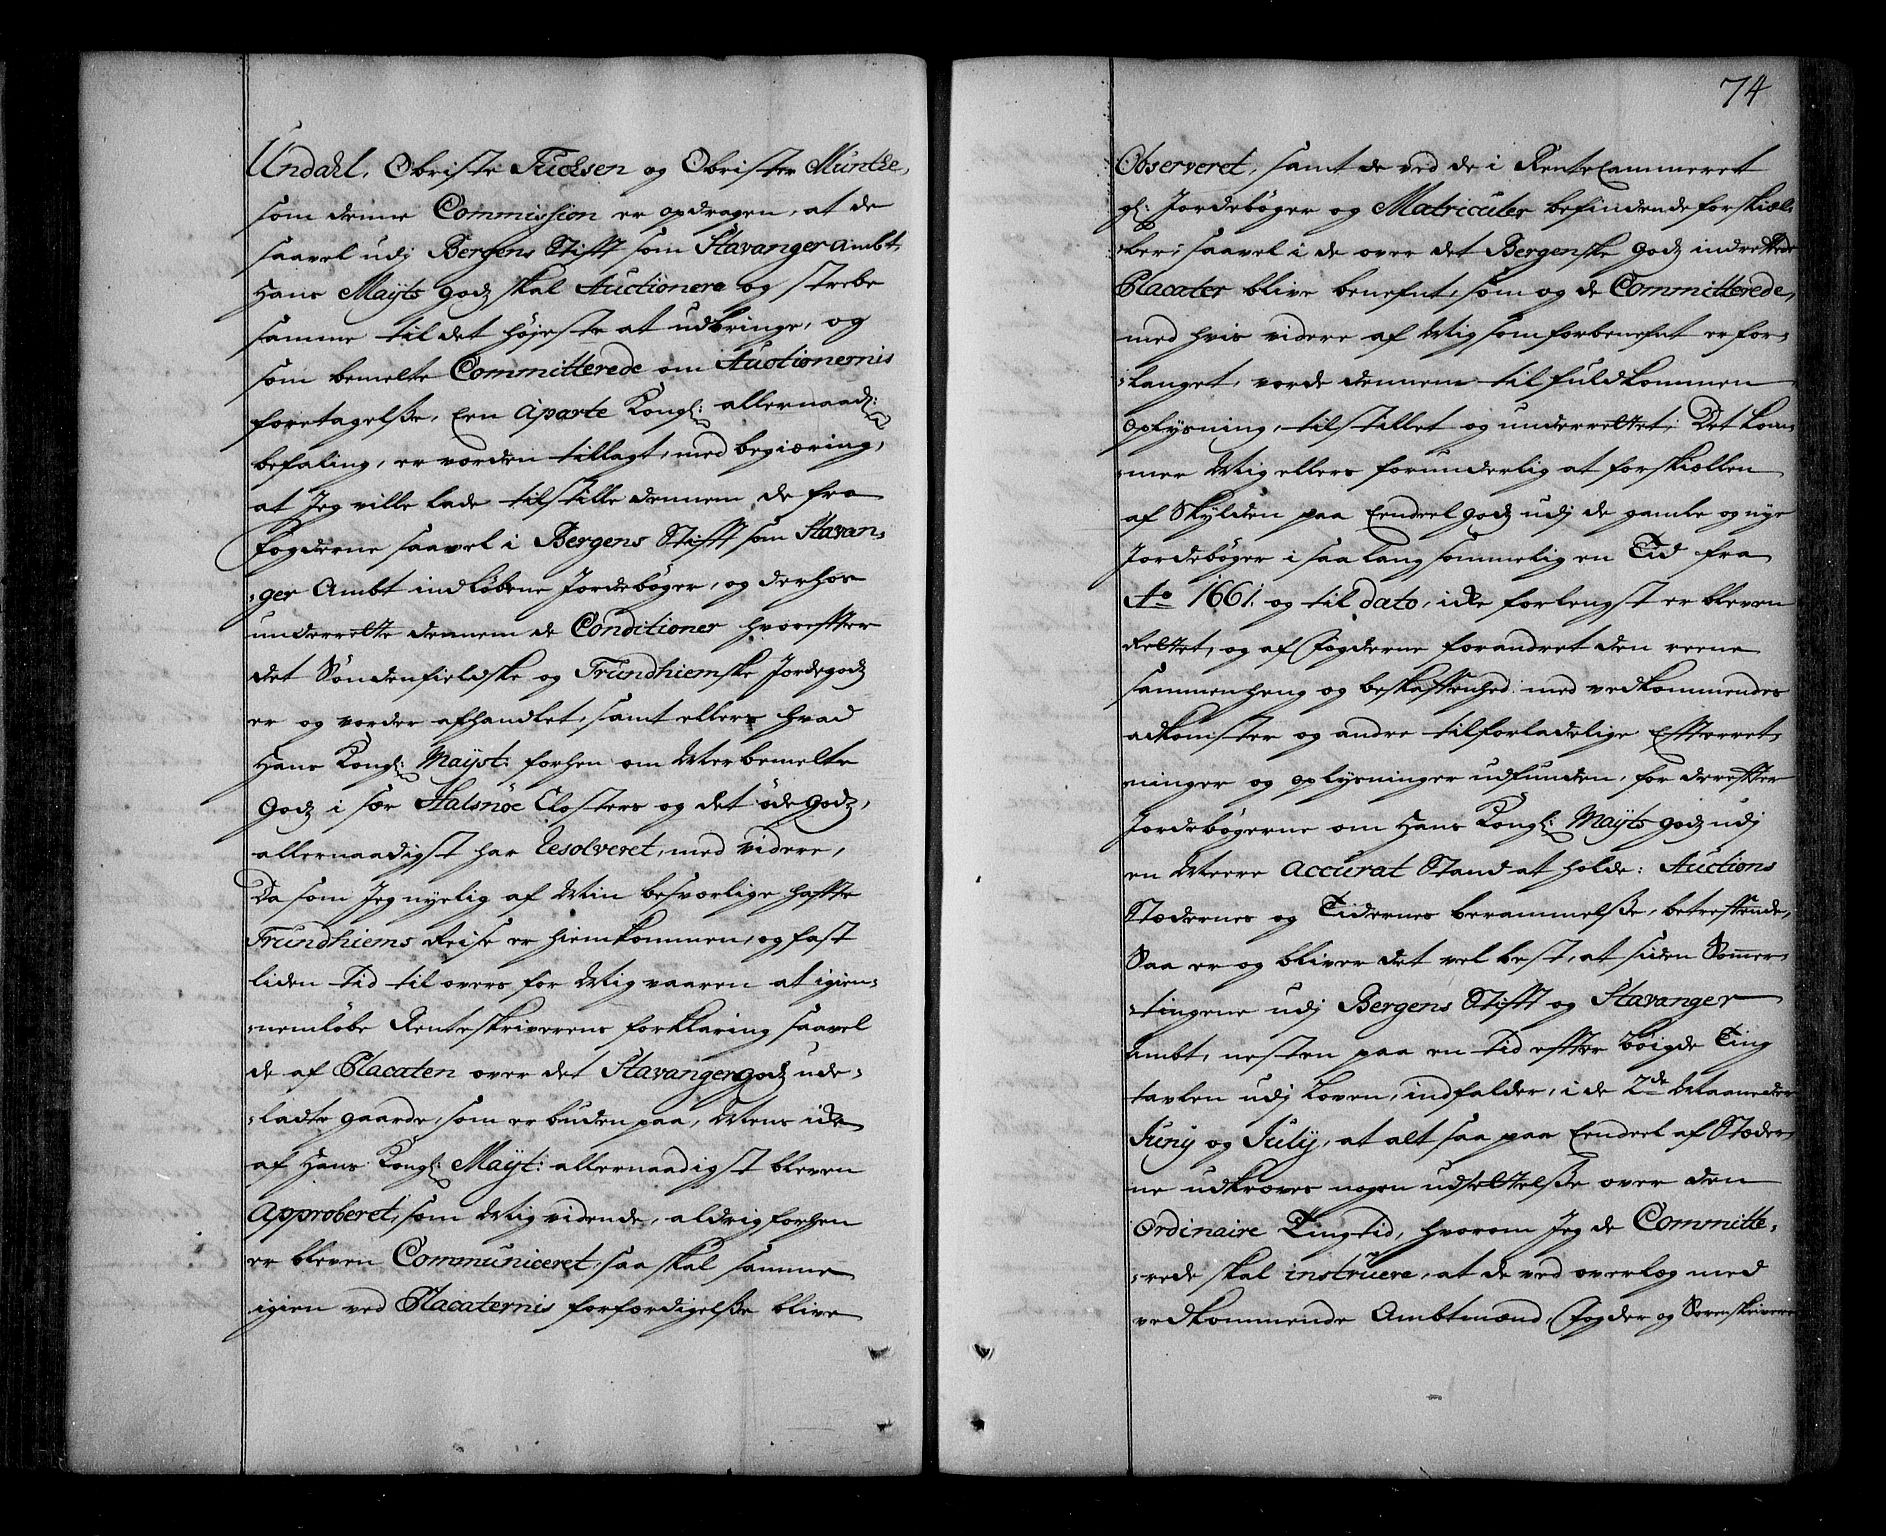 Undahl, Obriste Fuchsen og Obrister Münthe,
som denne Commission er opdragen, at de
saavel udj Bergens Stifft som Stavanger Ambt
Hans Mayts godz skal Auctionere og strebe
samme til det høyeste at udbringe, og
som bemelte Committerede om Auctionernis
foretagelße, Een aparte Kongl: allernaad:
befaling, er vorden tillagt, med begiæring,
at Jeg ville lade tilstille dennem, de fra
Fogderne saavel i Bergens Stifft som Stavan-
ger Ambt indløbene Jordebøger, og derhos
underrette dennem de Conditioner hvorefter
det Søndenfieldske og Trundhiemske Jordegodz
er og vorder afhandlet, samt ellers hvad
Hans Kongl: Mayst: forhen om Merbemelte
Godz i sær Halsnøe Closters og det øde Godz,
allernaadigst har Resolveret, med videre,
Da som Jeg nyelig af Min besværlige haffte
Trundhiems Reise er hiemkommen, og fast
liden Tid til overs for Mig vaaren at igien-
nemløbe Renteskriverens forklaring saavel
de af Placaten over det Stavanger godz ude-
ladte gaarde, som er buden paa, Mens icke
af Hans Kongl: Mayt: allernaadigst bleven
Approberet, som Mig vidende, aldrig forhen
er bleven Communiceret, saa skal samme
igien ved Placaternis forfærdigelße blive
74
Observeret, samt de ved de i RenteCammeret
gl: Jordebøger og Matriculer befindende forskiæl-
ler, saavel i de over det Bergenske godz indrettede
Placater blive benefnt, som og de Committerede,
med hvis videre af Mig som forbenefnt er for-
langet, vorde dennem til fuldkommen
oplysning, tilstillet og underrettet; Det kom-
mer Mig ellers forunderlig at forskiællen
af Skylden paa Eendeel godz udj de gamle og nye
Jordebøger i saa langsommelig en Tid fra
Ao 1661. og til dato, icke forlengst er bleven
Rettet, og af Fogderne forandret den reene
sammenheng og beskaffenhed med vedkommendes
adkomster og andre tilforladelige Efterret-
ninger og oplysninger udfunden, for derefter
Jordebøgerne om Hans Kongl: Mayts godz udj
en Meere accurat Stand at holde: Auctions
Stædernes og Tidernes berammelße, betreffende,
Saa er og bliver det vel best, at siden Sommer-
tingene udj Bergens Stifft og Stavanger
Ambt, nesten paa en tid effter bøigde Ting
tavlen udj Loven, indfalder, i de 2de Maaneder
Juny og July, at alt saa paa Eendeel af Stæder-
ne udkræves nogen udsettelße over den
Ordinaire Tingtid, hvorom Jeg de Committe-
rede skal instruere, at de ved overlæg med
vedkommende Ambtmænd, Fogder og Sorenskrivere